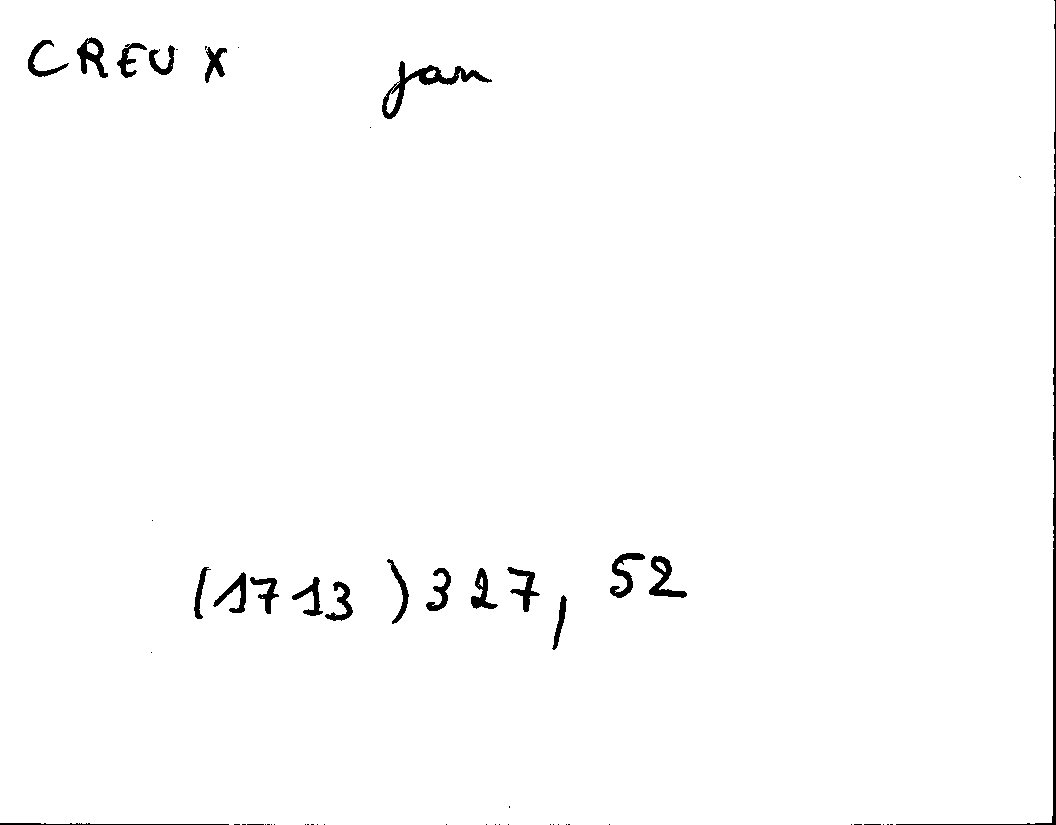 CREUX jan
(1713) 327, 52